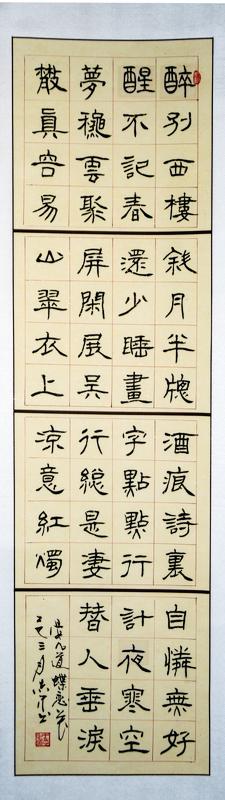 醉别西樓
醒不記春
夢穐雲聚
散眞容易
斜月半牕
還少睡畫
屏閑展吳
山翠衣上
酒痕詩裏
字點點行
行総是凄
凉意紅燭
自憐無好
計夜寒空
替人垂淚
晏几道蝶恋花
三月书